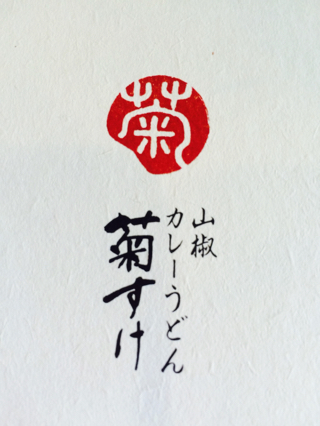 菊
山椒
カレーうどん
菊すけ